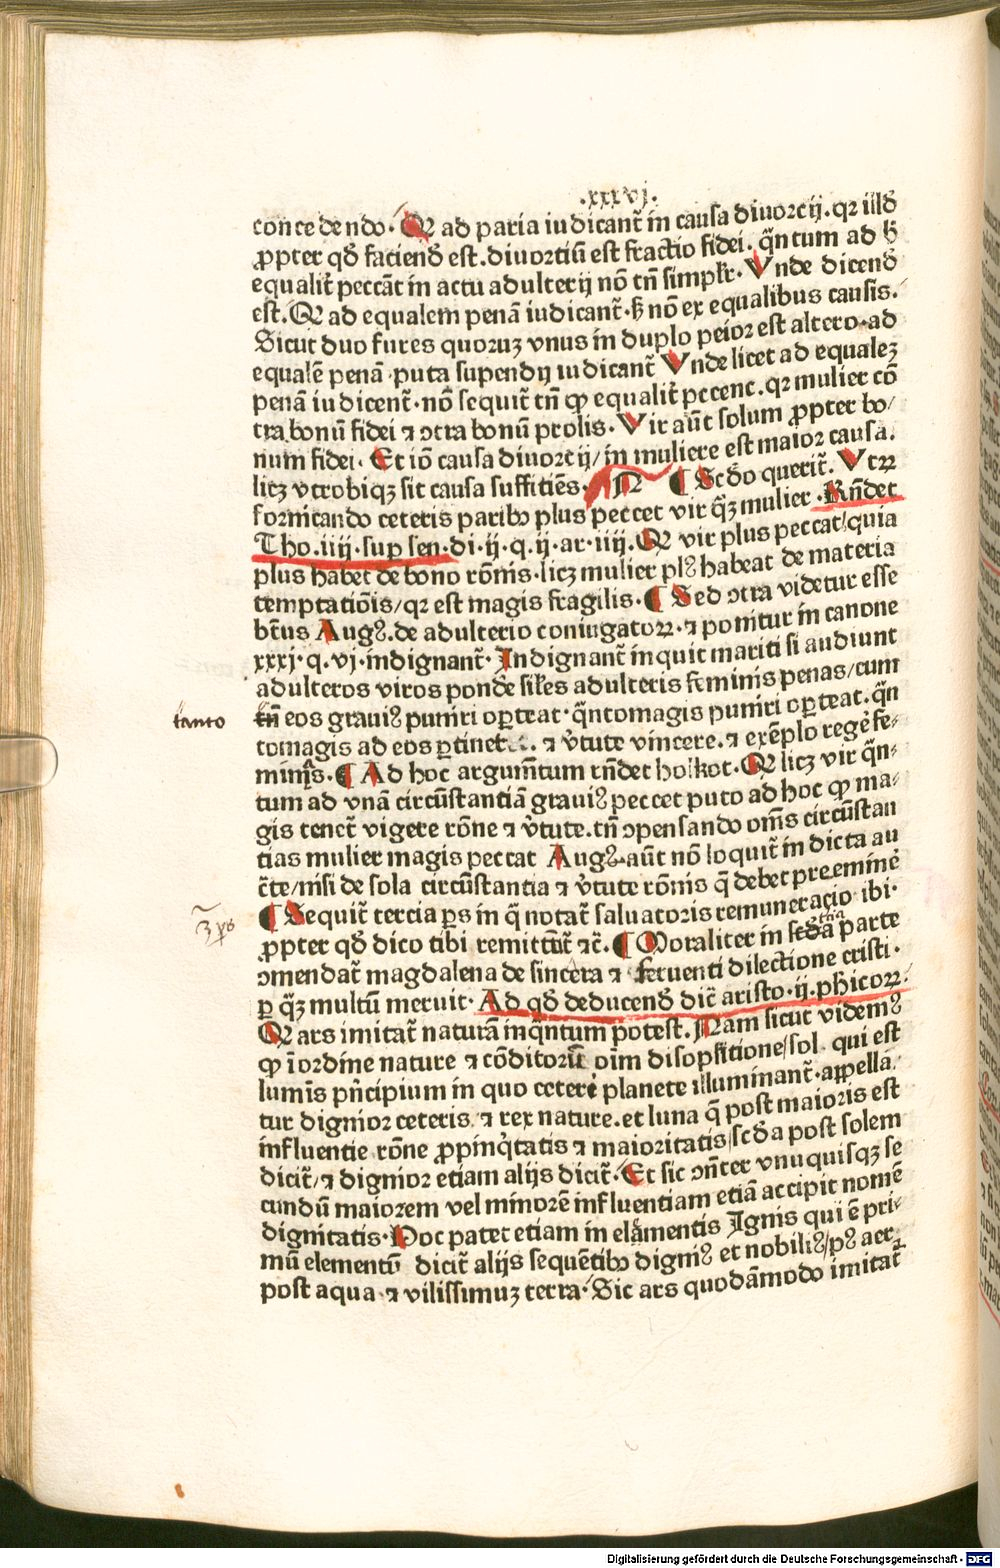 .xxxvj.
concedendo. Qꝛ ad paria iudicant̃ in causa diuorcij. qꝛ illđ
ꝓpter qđ faciendđ est. diuortiũ est fractio fidei. q̃ntum ad ħ
equalit̃ peccãt in actu adulterij nõ tñ simplr̃. Vnde dicenđ
est. Qꝛ ad equalem penã iudicant̃. ſꝫ nõ ex equalibus causis.
Sicut duo fures quoruꝫ vnus in duplo peior est altero. ad
equalẽ penã puta supendij iudicant̃ Vnde licet ad equaleꝫ
penã iudicent̃. nõ sequit̃ tñ ꝙ equalit̃ peccent. qꝛ mulier cõ
tra bonũ fidei ⁊ ɔtra bonũ prolis. Vir aũt solum ꝓpter bo/
num fidei. Et iõ causa diuorcij/ in muliere est maior causa.
licꝫ vtrobiqꝫ sit causa suffitiẽs. ¶ Scđo querit̃. Vtꝝ
fornicando ceteris paribꝰ plus peccet vir q̃ꝫ mulier. Rñdet
Tho. iiij. sup sen. di. ij. q. ij. ar. iiij. Qꝛ vir plus peccat/ quia
plus habet de bono rõnis. licꝫ mulier plꝰ habeat de materia
temptatiõis/ qꝛ est magis fragilis. ¶ Sed ɔtra videtur esse
bt̃us Augꝰ. de adulterio coniugatoꝝ. ⁊ ponitur in canone
xxxj. q. vj. indignant̃. Indignant̃ inquit mariti si audiunt
adulteros viros pondẽ sil̃es adulteris feminis penas/ cum
tanto tñ eos grauiꝰ puniri oꝑteat. q̃ntomagis puniri oꝑteat. q̃n
tomagis ad eos ꝑtinet ... ⁊ v̓tute vincere. ⁊ exẽplo regẽ fe-
minas. ¶ Ad hoc argum̃tum rñdet holkot. Qꝛ licꝫ vir q̃n-
tum ad vnã circũstantiã grauiꝰ peccet puto ad hoc ꝙ ma-
gis tenet̃ vigere rõne ⁊ v̓tute. tñ ɔpensando om̃s circũstan
tias mulier magis peccat Augꝰ. aũt nõ loquit̃ in dicta au
ct̃te/ nisi de sola circũstantia ⁊ v̓tute rõnis q̃ debet preeminẽ
3ᵃ ps ¶ Sequit̃ tercia ps in q̃ notat̃ saluatoris remuneraçio ibi.
ꝓpter qđ dico tibi remittũt̃ ⁊c̃. ¶ Moraliter in scđa tria parte
ɔmendat̃ magdalena de sincera ⁊ feruenti dilectione cristi.
ꝑ q̃ꝫ multũ meruit. Ad qđ deducenđ dic̃ aristo. ij. phicoꝝ.
Qꝛ ars imitat̃ naturã inq̃ntum potest. Nam sicut videmꝰ
ꝙ ĩ ordine nature ⁊ cõditorũ oĩm disopsitione/ sol qui est
lumĩs pñcipium in quo ceteri planete illuminant̃. appella-
tur dignior ceteris ⁊ rex nature. et luna q̃ post maioris est
influentie rõne ꝓpinq̇tatis ⁊ maioritatis/ scđa post solem
dicit̃/ ⁊ dignior etiam alijs dicit̃. Et sic ɔñter vnuquisqꝫ se
cundũ maiorem vel minorẽ influentiam etiã accipit nomẽ
dignitatis. Hoc patet etiam in elamentis Ignis qui ẽ pri-
mũ elementũ dicit̃ alijs sequẽtibꝰ digniꝰ et nobiliꝰ/ pꝰ aer
post aqua ⁊ vilissimuꝫ terra. Sic ars quodãmodo imitat̃
Digitalisierung gefördert durch die Deutsche Forschungsgemeinschaft - DFG